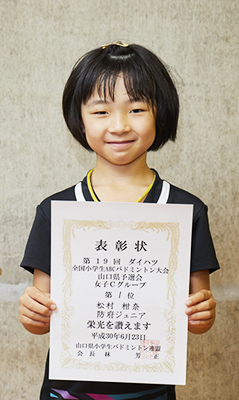 表彰状
第19回 ダイハツ
全国小学生ABCバドミントン大会
山口県予選会
女子Cグループ
第1位
松村 柑奈
防府ジュニア
栄光を讃えます
平成30年6月23日
山口県小学生バドミントン連盟
会長 林 芳正